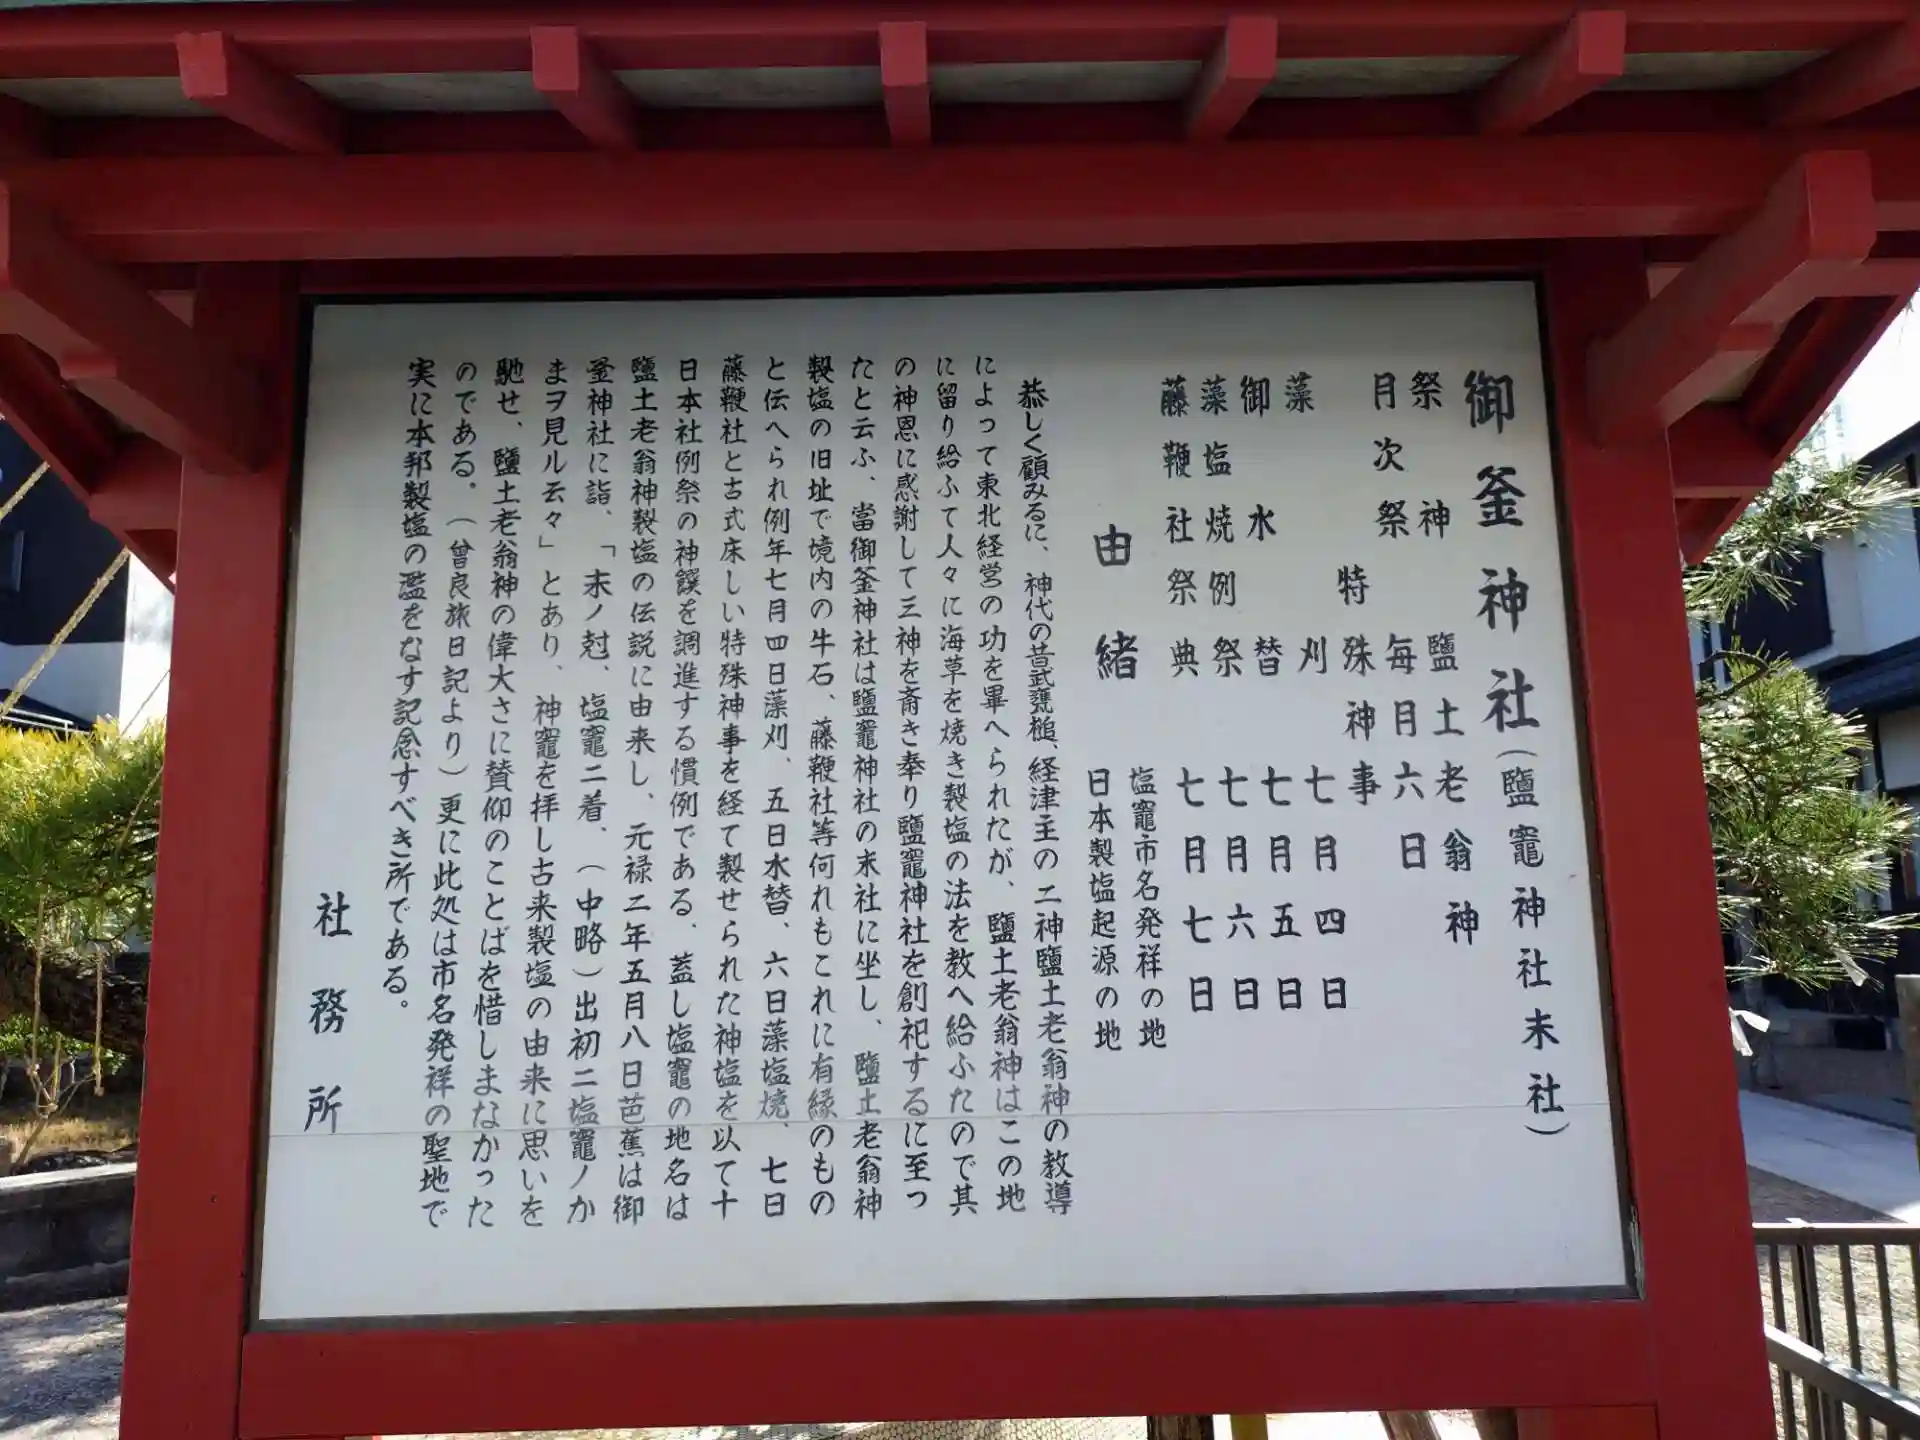 御釜神社(鹽竈神社末社)
祭神 鹽土老翁神
月次祭 毎月六日
特殊神事
藻刈 七月四日
御水替 七月五日
藻塩焼例祭 七月六日
藤鞭社祭典 七月七日
塩竈市名発祥の地
由緒
日本製塩起源の地
恭しく顧みるに、神代の昔武甕槌、経津主の二神鹽土老翁神の教導
によって東北経営の功を畢へられたが、鹽土老翁神はこの地
に留り給ふて人々に海草を焼き製塩の法を教へ給ふたので其
の神恩に感謝して三神を斎き奉り鹽竈神社を創祀するに至っ
たと云ふ、當御釜神社は鹽竈神社の末社に坐し、鹽土老翁神
製塩の旧址で境内の牛石、藤鞭社等何れもこれに有縁のもの
と伝へられ例年七月四日藻刈、五日水替、六日藻塩焼、七日
藤鞭社と古式床しい特殊神事を経て製せられた神塩を以て十
日本社例祭の神饌を調進する慣例である、蓋し塩竈の地名は
鹽土老翁神製塩の伝説に由来し、元禄二年五月八日芭蕉は御
釜神社に詣、「末ノ尅、塩竈ニ着、(中略)出初ニ塩竈ノか
まヲ見ル云々」とあり、神竈を拝し古来製塩の由来に思いを
馳せ、鹽土老翁神の偉大さに賛仰のことばを惜しまなかった
のである。(曾良旅日記より)更に此処は市名発祥の聖地で
実に本邦製塩の濫をなす記念すべき所である。
社務所